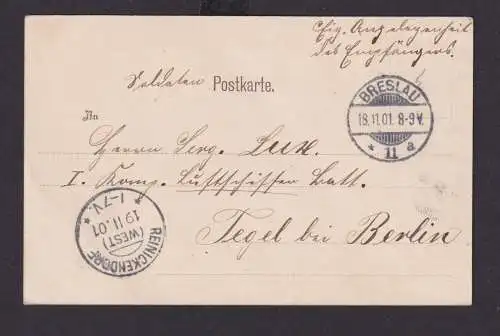 Eig. Angelegenheit
des Empfängers.
Soldaten Postkarte.
An
BRESLAU
18.11.01. 8-9V.
* 11 a
Herrn Serg. Lux.
I. Komp. Luftschiffer Batt.
Tegel bei Berlin
REINICKENDORF
(WEST)
19.11.01
1-7V.